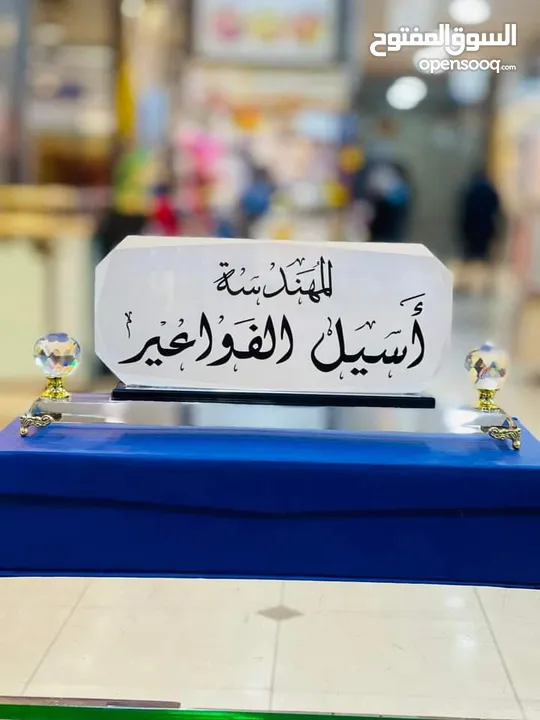 السوق المفتوح
opensooq.com
المهندسة
أَسيل الفواعير